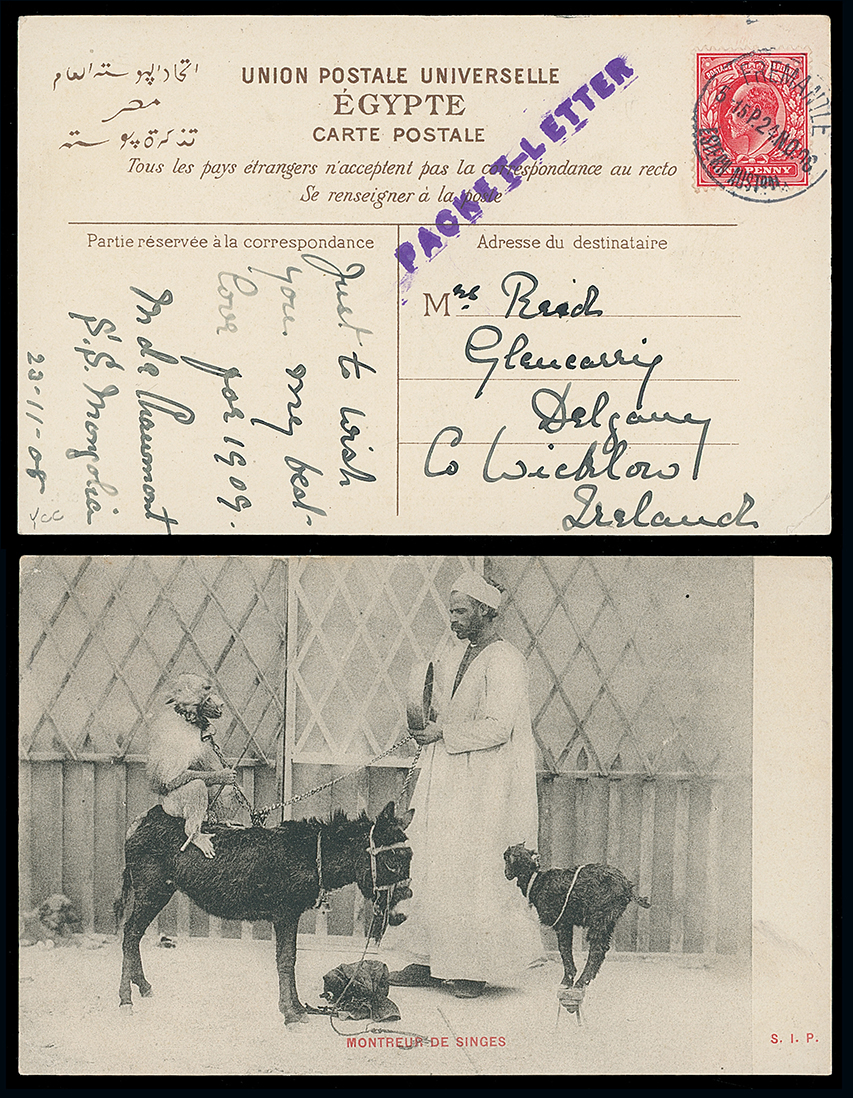 اتحاد الپوسته العام
مصر
تذكرة پوسته
UNION POSTALE UNIVERSELLE
ÉGYPTE
CARTE POSTALE
Tous les pays étrangers n'acceptent pas la correspondance au recto
Se renseigner à la poste
PACKET-LETTER
FREMANTLE
WESTERN AUSTRALIA
PENNY
Partie réservée à la correspondance
Just to wish
you my best
love for 1909.
M de Chaumont
S.S. Mongolia
23-11-08
Adresse du destinataire
Mrs Reid
Glencarrig
Delgany
Co Wicklow
Ireland
MONTREUR DE SINGES
S. I. P.